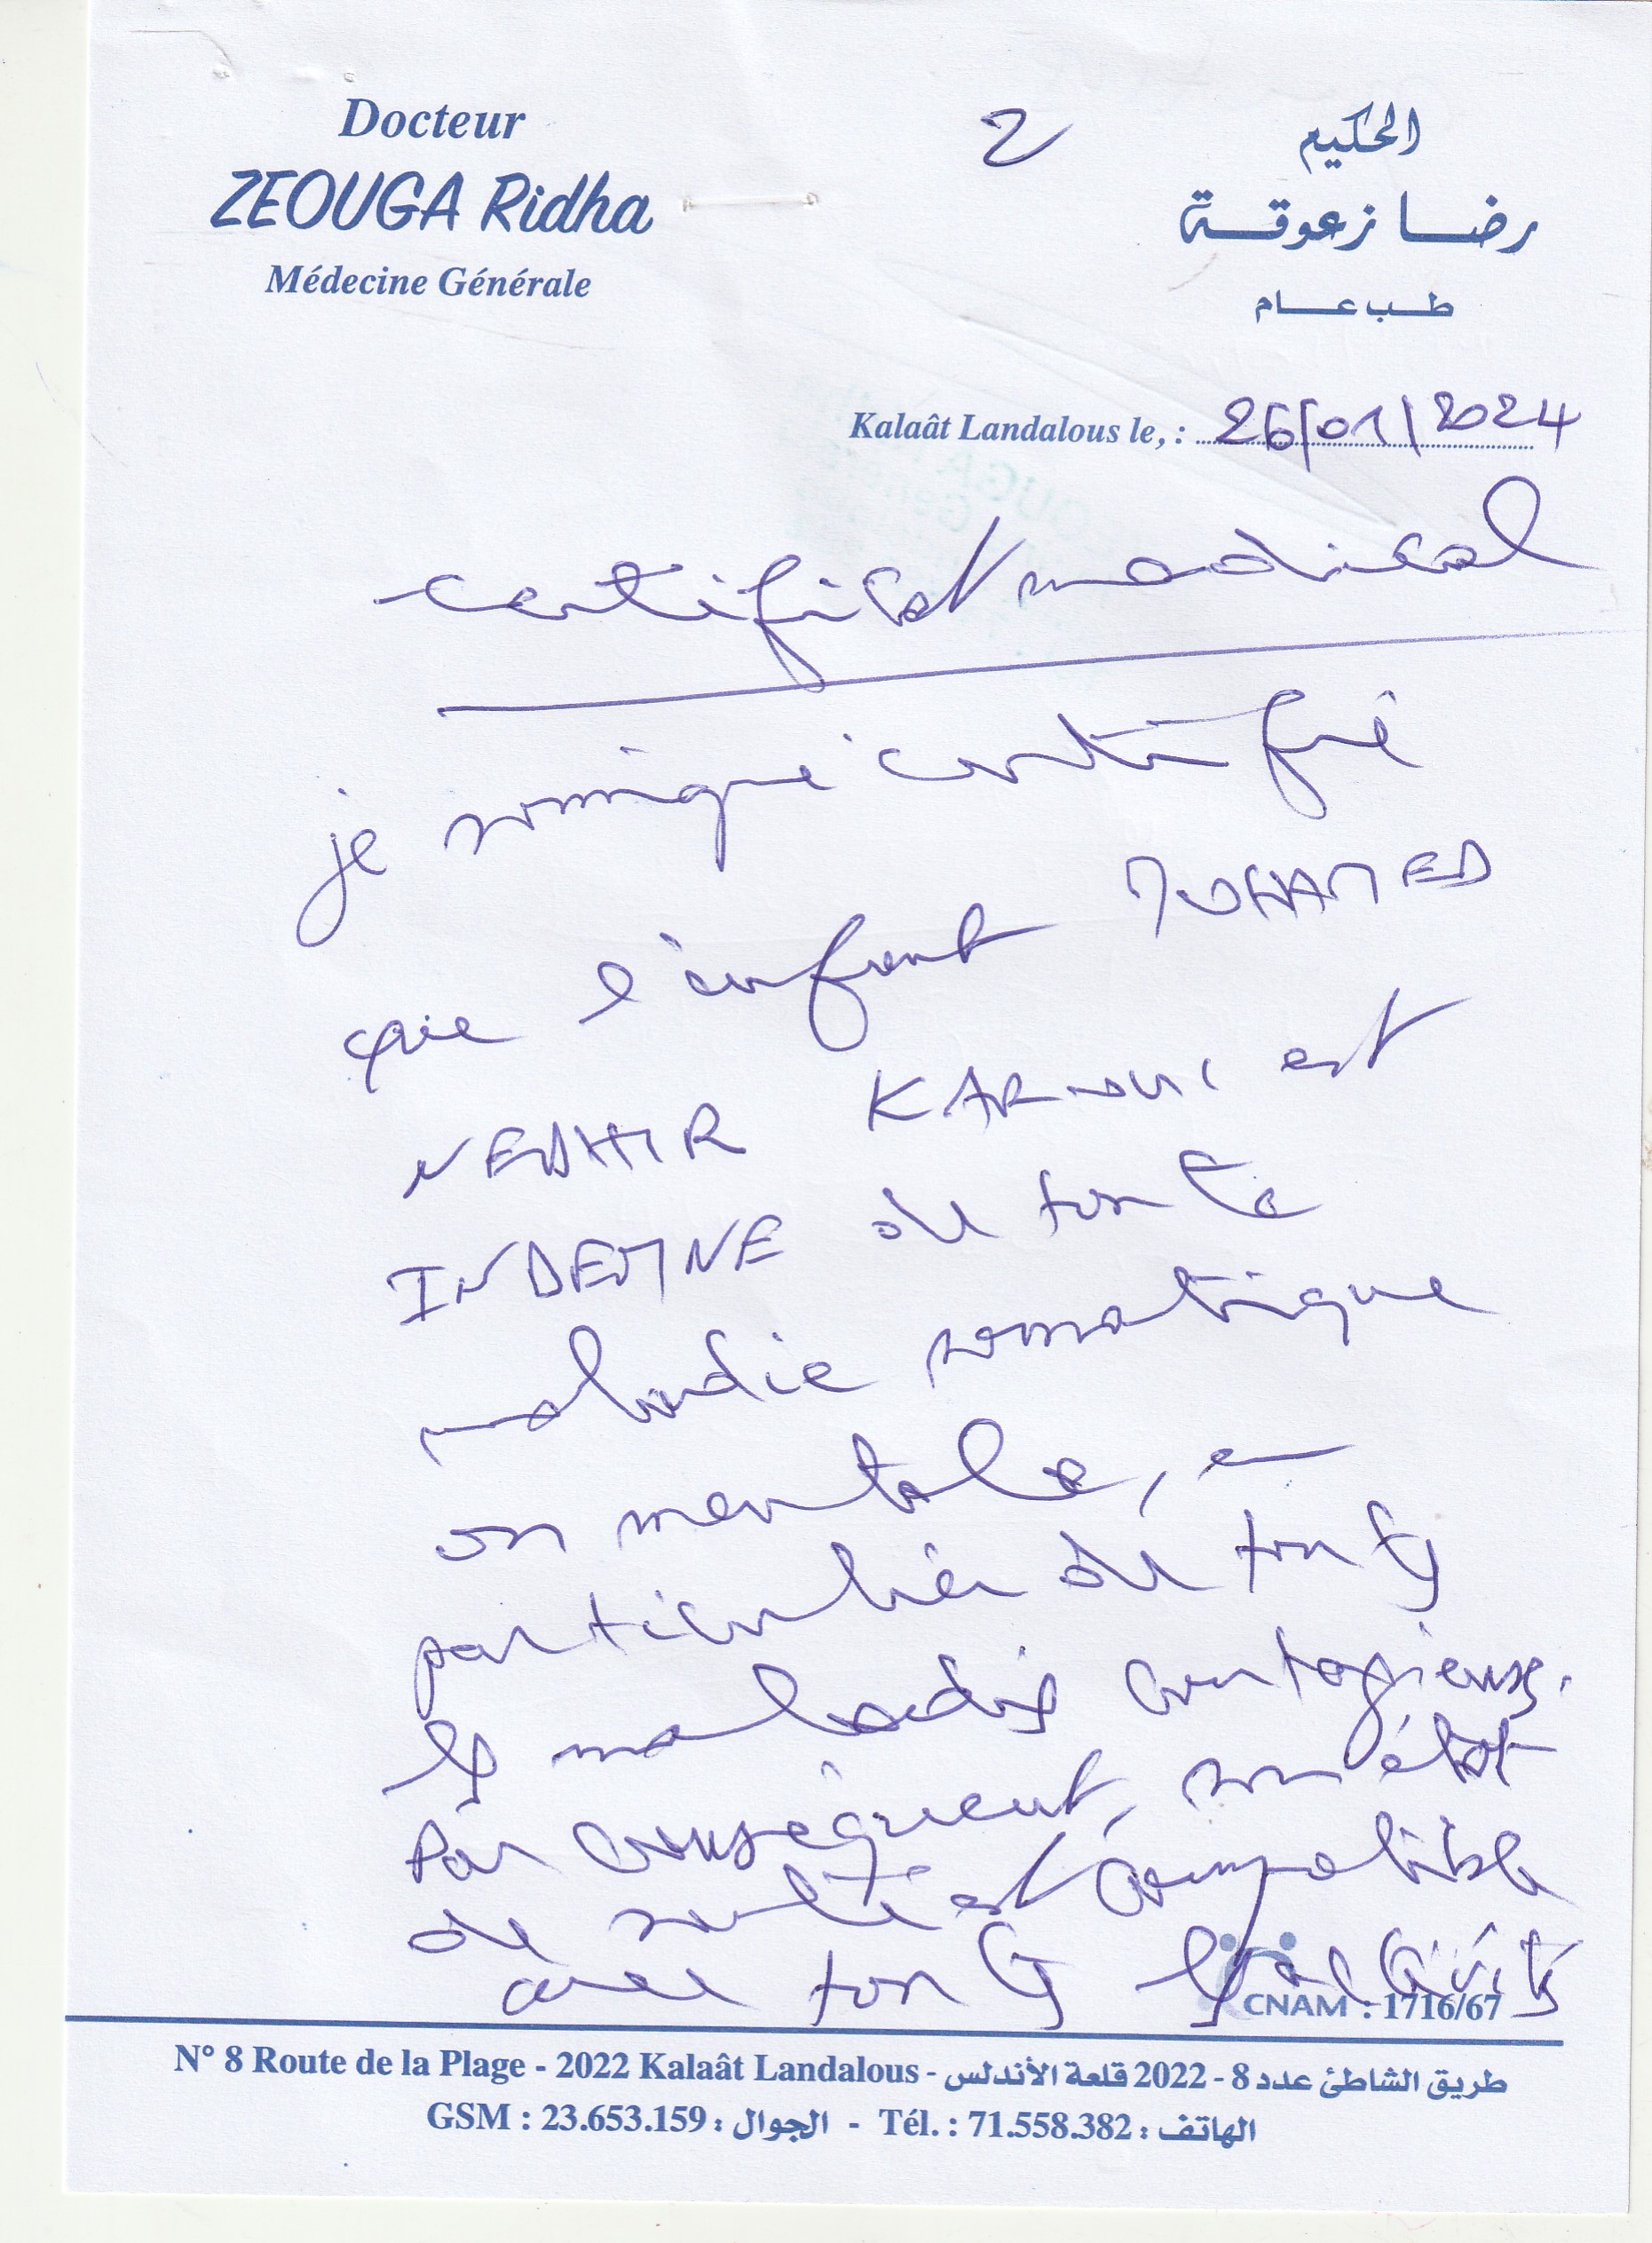 Docteur
ZEOUGA Ridha
Médecine Générale
2
الحكيم
رضا زعوقة
طب عام
Kalaât Landalous le, : 26/01/2024
certificat medical
je soussigné certifie
que l'enfant MOHAMED
NEDHIR KAROUI est
INDEMNE de toute
maladie somatique
ou mentale, en
particulier de toutes
les maladies contagieuses.
Par conséquent, son état
de santé est compatible
avec toutes les activités
CNAM : 1716/67
N° 8 Route de la Plage - 2022 Kalaât Landalous - طريق الشاطئ عدد 8 - 2022 قلعة الأندلس
GSM : 23.653.159 : الجوال - Tél. : 71.558.382 : الهاتف